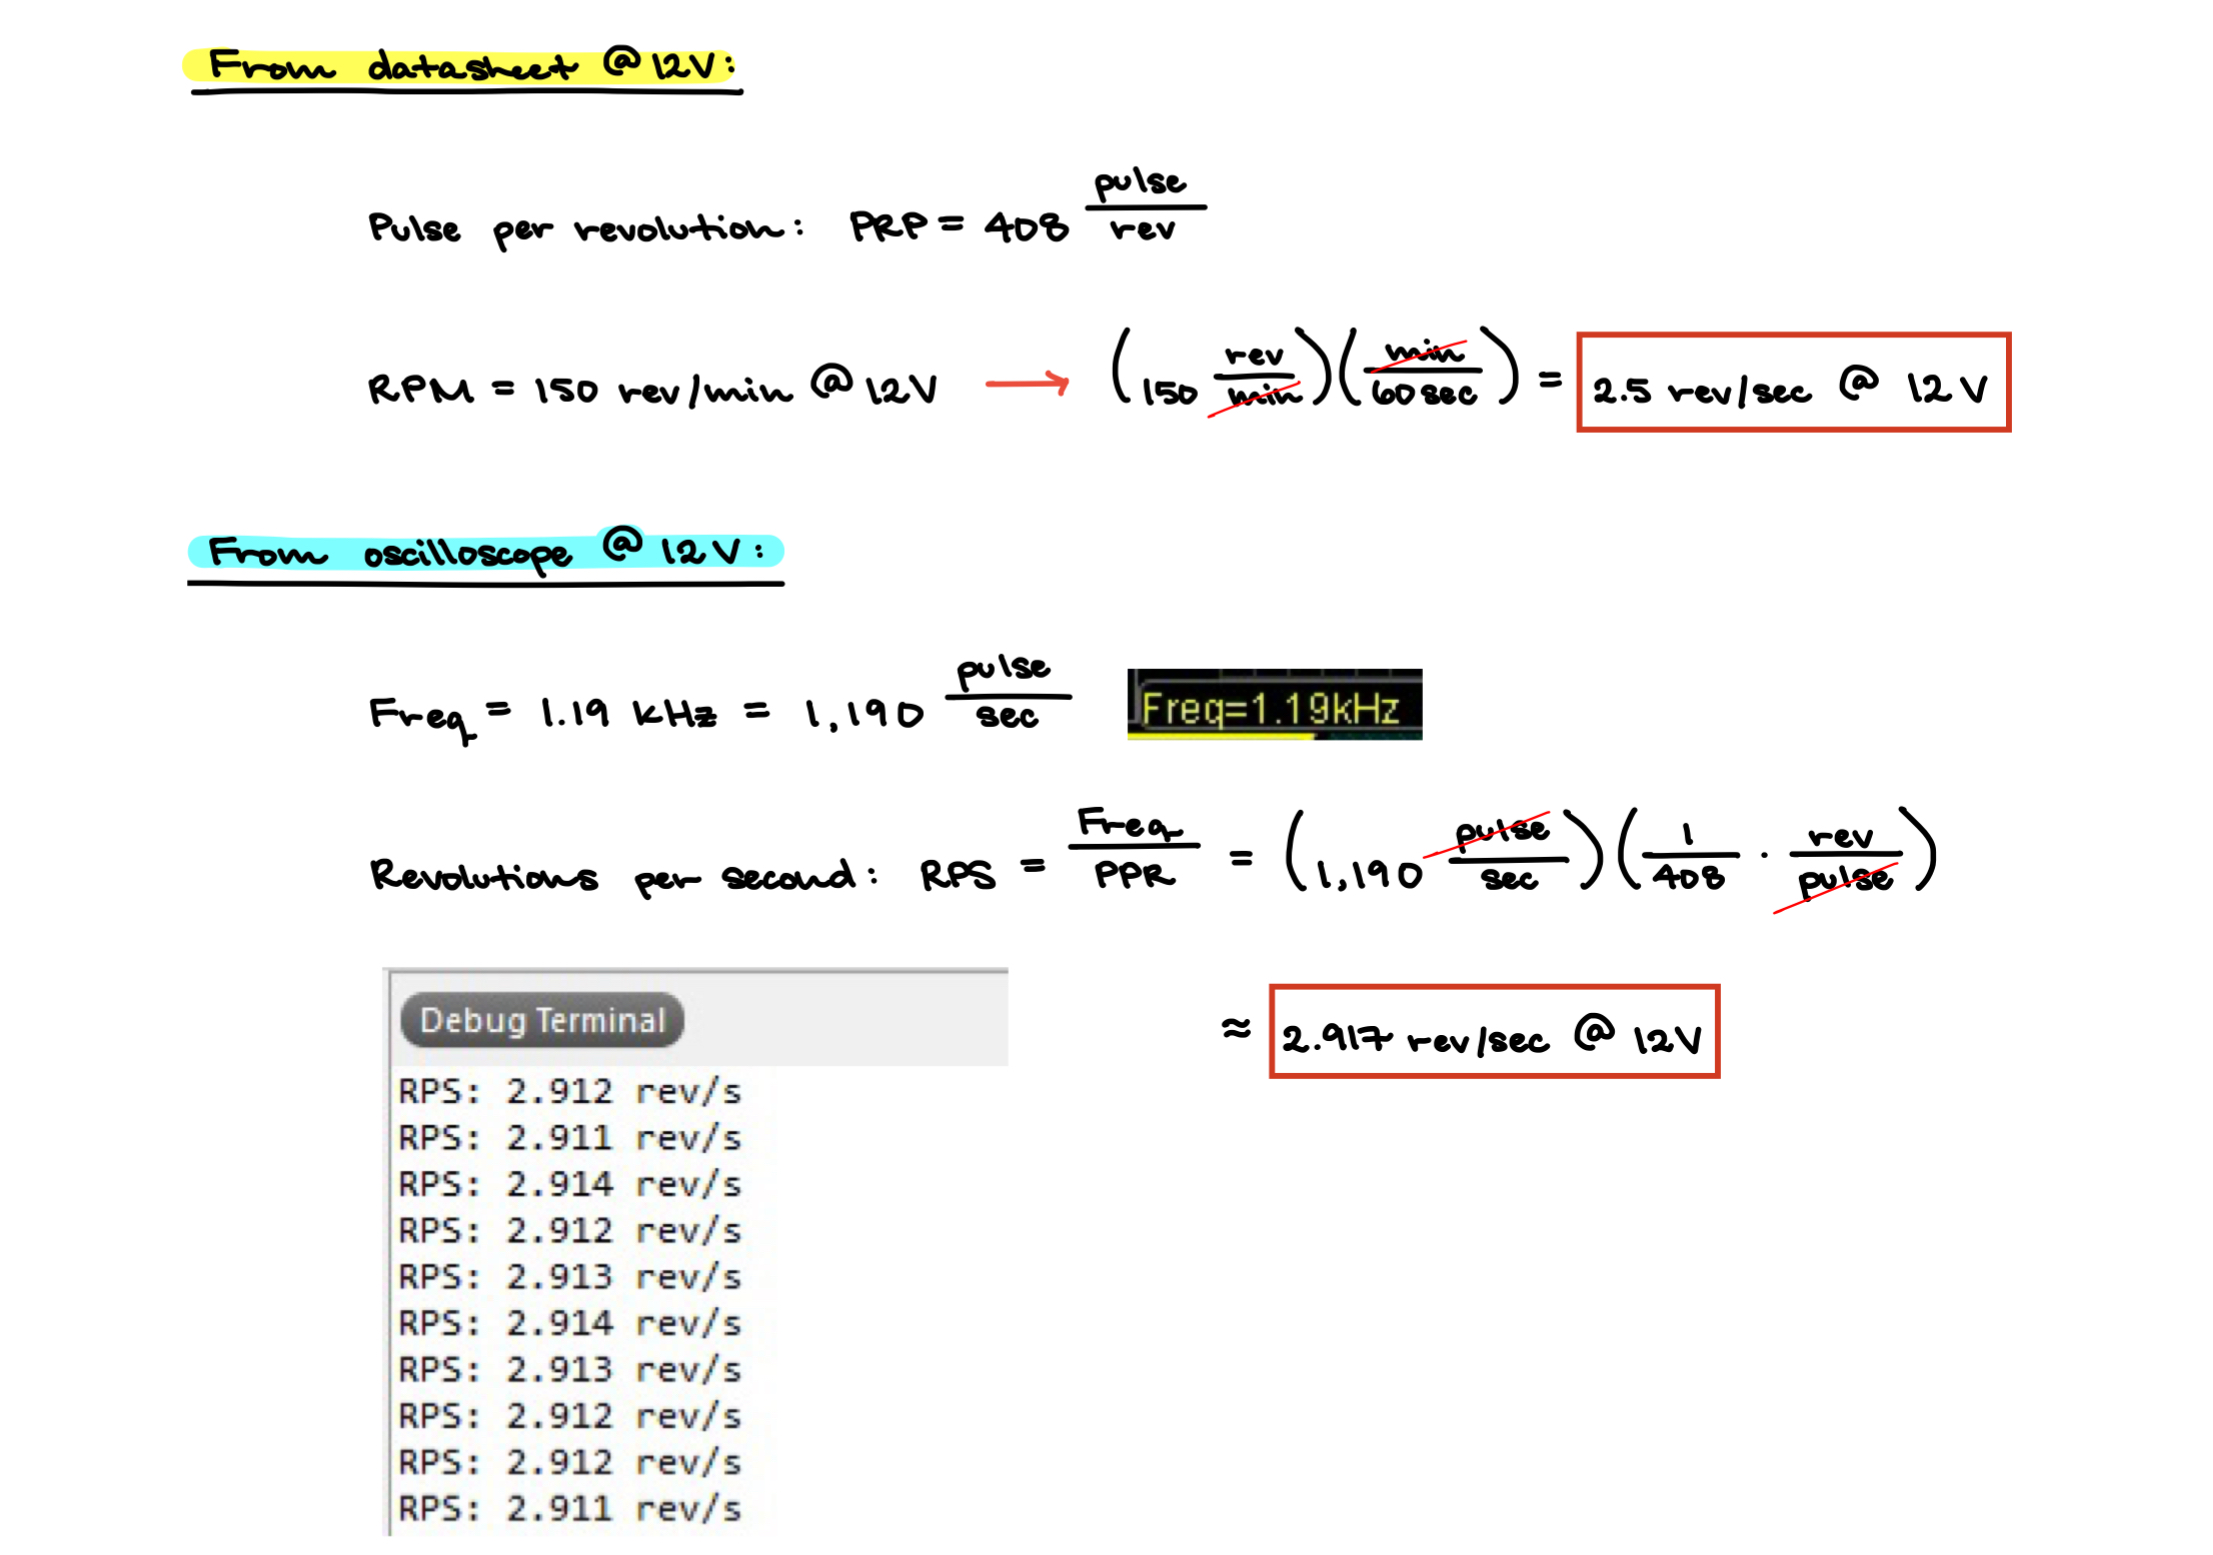 From datasheet @ 12V:
Pulse per revolution: PRP = 408 pulse/rev
RPM = 150 rev/min @ 12V → (150 rev/min)(min/60sec) = 2.5 rev/sec @ 12V
From oscilloscope @ 12V:
Freq = 1.19 kHz = 1,190 pulse/sec Freq=1.19kHz
Revolutions per second: RPS = Freq/PPR = (1,190 pulse/sec)(1/408 · rev/pulse)
≈ 2.917 rev/sec @ 12V
Debug Terminal
RPS: 2.912 rev/s
RPS: 2.911 rev/s
RPS: 2.914 rev/s
RPS: 2.912 rev/s
RPS: 2.913 rev/s
RPS: 2.914 rev/s
RPS: 2.913 rev/s
RPS: 2.912 rev/s
RPS: 2.912 rev/s
RPS: 2.911 rev/s